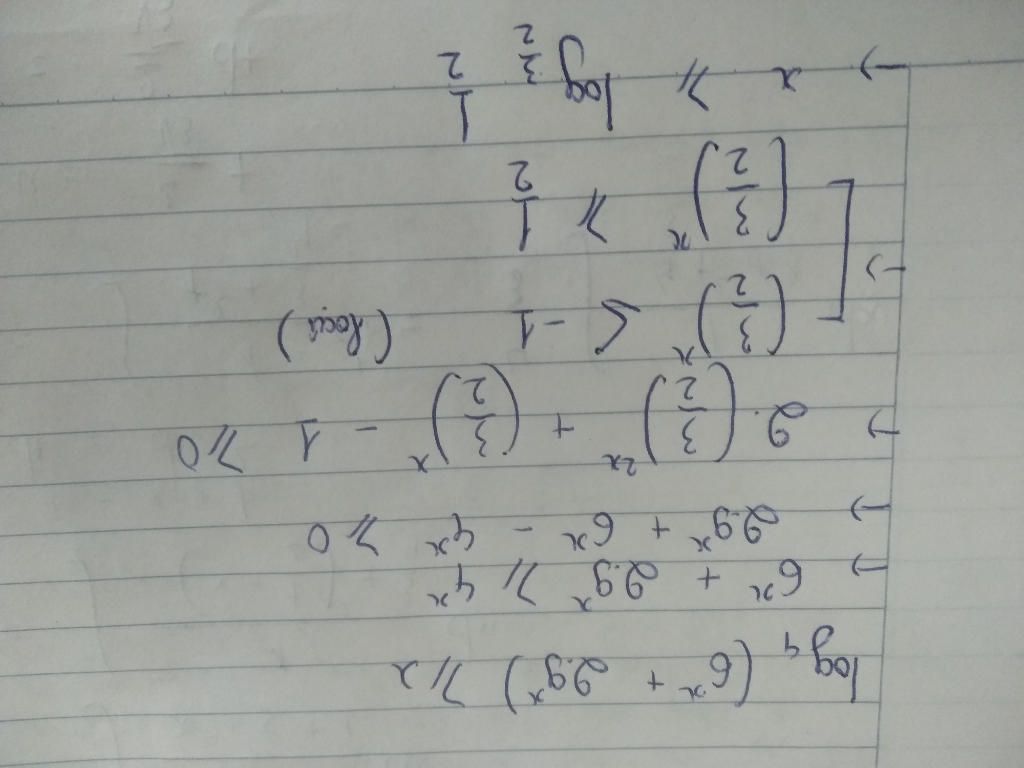 log₄ (6ˣ + 2.9ˣ) ⩾ x
→ 6ˣ + 2.9ˣ ⩾ 4ˣ
→ 2.9ˣ + 6ˣ - 4ˣ ⩾ 0
→ 2. (3/2)²ˣ + (3/2)ˣ - 1 ⩾ 0
→ [ (3/2)ˣ ⩽ -1 (loại)
(3/2)ˣ ⩾ 1/2
→ x ⩾ log_(3/2) 1/2